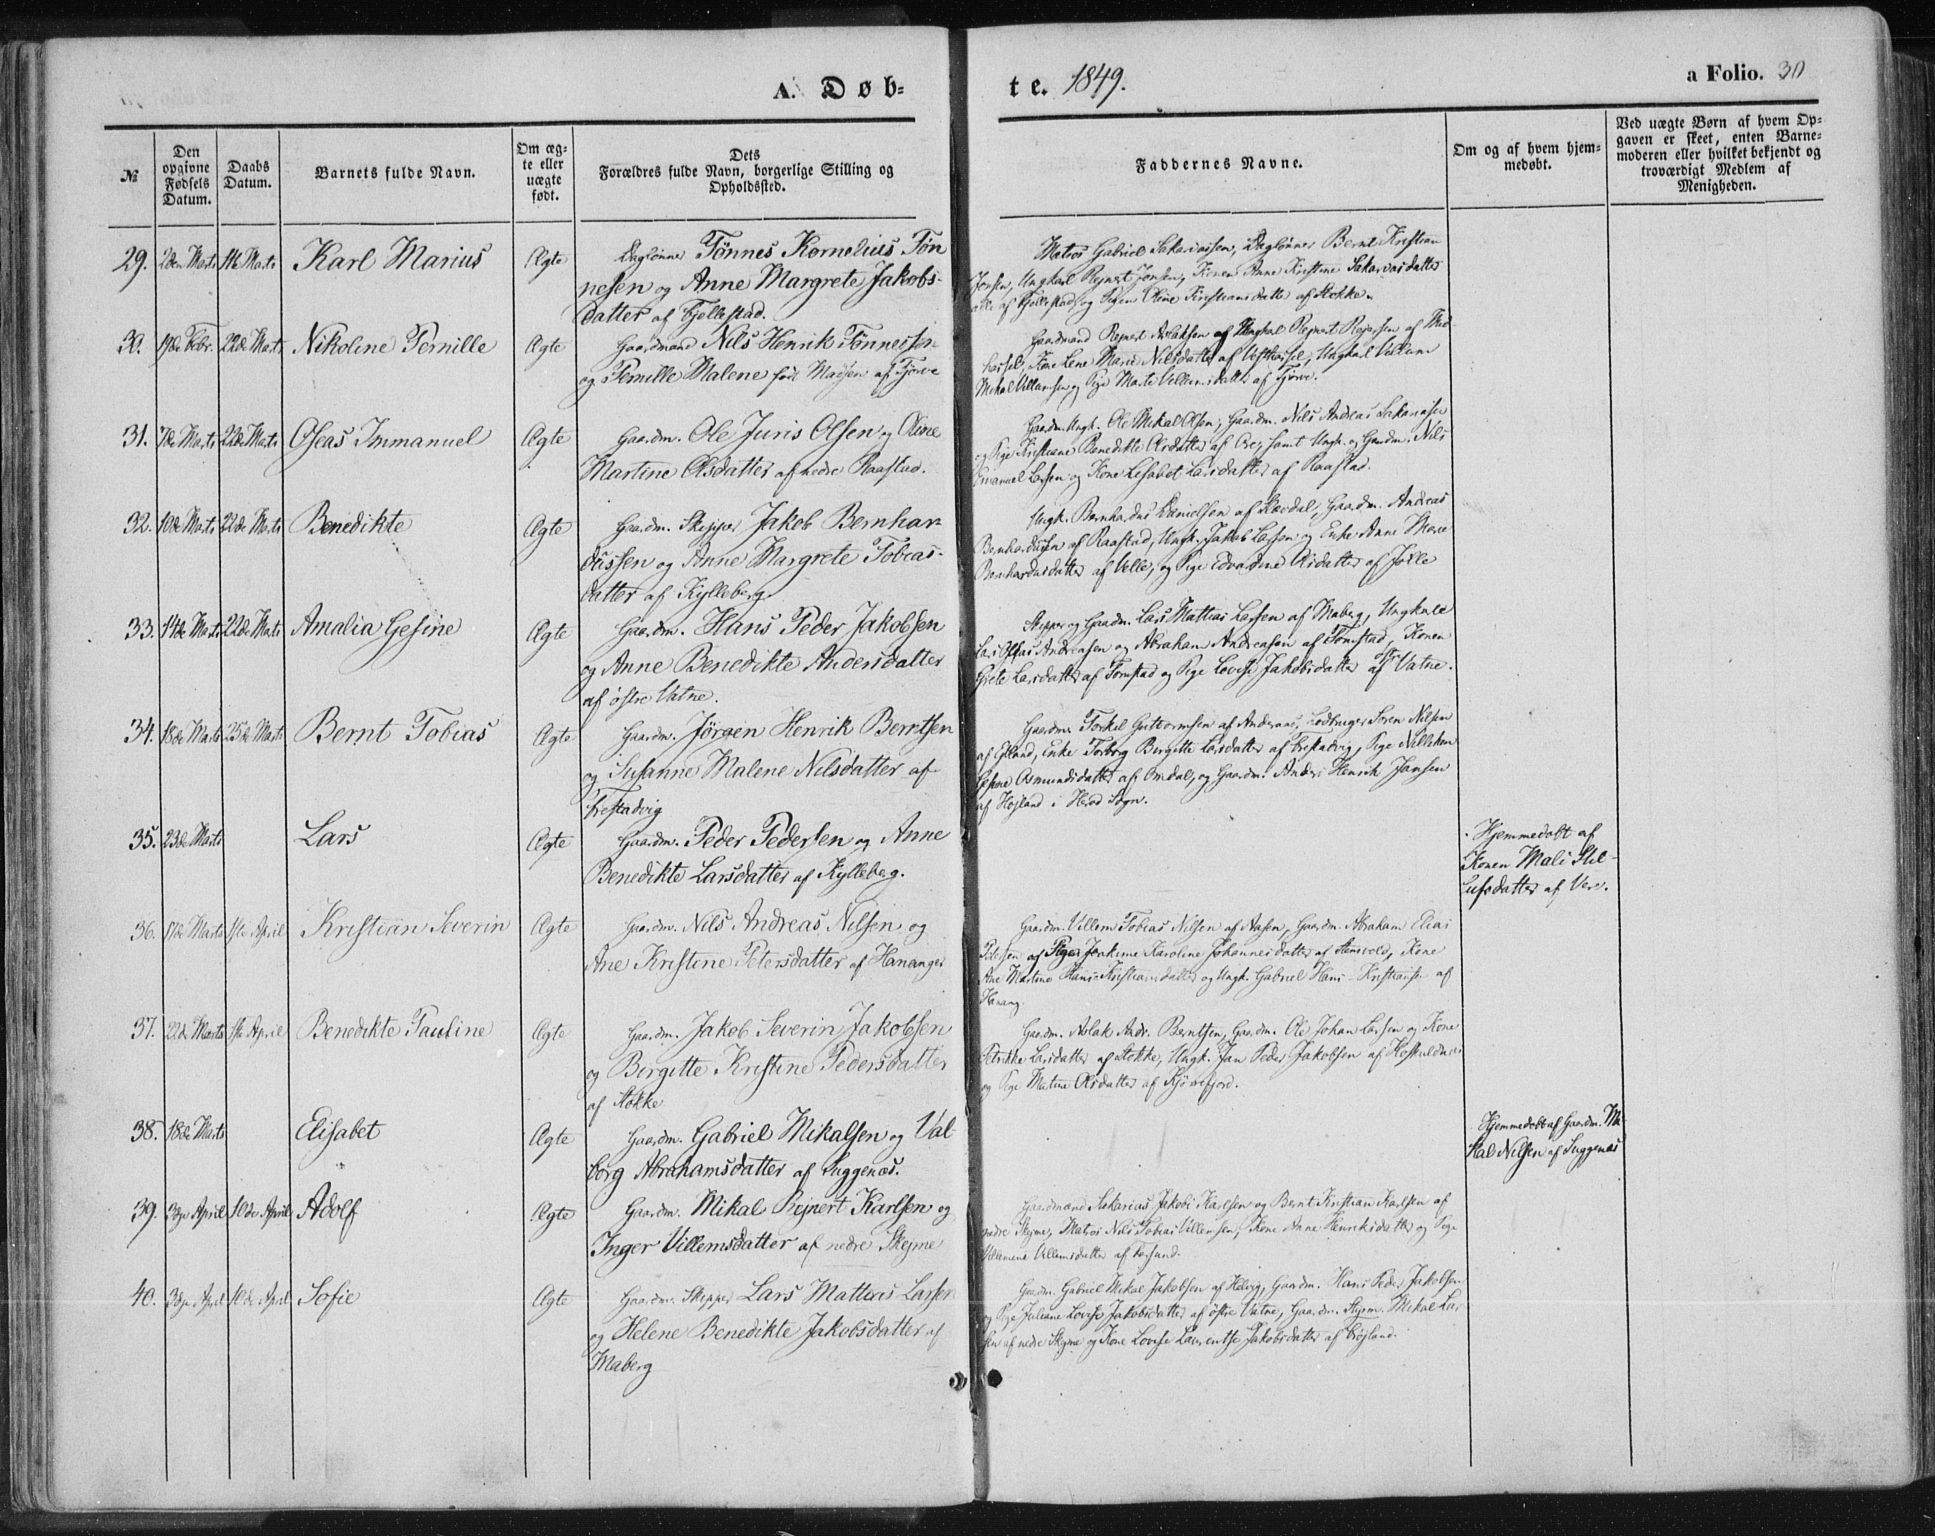 A. Døb-
te. 1849.
a Folio. 30
№
Den
opgivne
Fødsels
Datum.
Daabs
Datum.
Barnets fulde Navn.
Om æg-
te eller
uægte
født.
Dets
Forældres fulde Navn, borgerlige Stilling og
Opholdssted.
Faddernes Navne.
Om og af hvem hjem-
medøbt.
Ved uægte Børn af hvem Op-
gaven er skeet, enten Barne-
moderen eller hvilket bekjendt og
troværdigt Medlem af
Menigheden.
29. 2den Marts Marts Karl Marius Ægte Daglønner Tønnes Kornelius Tøn
nesen og Anne Margrete Jakobs-
datter af Fjellestad.
Matros Gabriel Sakariassen, Daglønner Bernt Kristian
Jensen, Ungkarl Rejnert Jensen, Konen Anne Kirstine Sakariasdatter
alle af Fjellestad og Pigen Oline Kristiansdatter af Stokke.
30. 19de Febr. 22de Marts Nikoline Pernille Ægte Gaardmand Nils Henrik Tønnessen
og Pernille Malene født Madsen af Tjørve
Gaardmand Rejnert Aslaksen og Ungkarl Rejnert Rejersen af Mid
hassel, Kone Lene Marie Nilsdatter af Vesthassel, Ungkarl Villum
Mikal Villumsen og Pige Marte Villumsdatter af Tjørve.
31. 7de Marts 22de Marts Oseas Immanuel Ægte Gaardm. Ole Juris Olsen og Oline
Martine Olsdatter af nedre Raastad.
Gaardm. Ungk. Ole Mikal Olsen, Gaardm. Nils Andreas Sakariasen
og Pige Kristiane Benedikte Olsdatter af Ore, samt Ungk. og Gaardm. Nils
Emanuel Larsen og Kone Lisabet Larsdatter af Raastad.
32. 10de Marts 22de Marts Benedikte Ægte Gaardm. Skipper Jakob Bernhar
dussen og Anne Margrete Tobias-
datter af Kylleberg.
Ungk. Bernhardus Danielsen af Skardal, Gaardm. Andreas
Bernhardusen af Raastad, Ungk. Jakob Larsen og Enke Anne Marie
Bernhardusdatter af Velle, og Pige Edvardine Olsdatter af Jølle
33. 14de Marts 22de Marts Amalia Gesine Ægte Gaardm. Hans Peder Jakobsen
og Anne Benedikte Andersdatter
af østre Vatne.
Skipper og Gaardm. Lars Mattias Larsen af Maberg, Ungkarle
Lars Andreasen og Abraham Andreasen af Tomstad, Konen
Grete Larsdatter af Tomstad og Pige Lovise Jakobsdatter af Vatne.
34. 18de Marts 25de Marts Bernt Tobias Ægte Gaardm. Jørgen Henrik Berntsen
og Susanne Malene Nilsdatter af
Frestadvig
Gaardm. Torkil Guttormsen af Andersaas, Lødtager Soren Nilsen
af Eiland, Enke Torborg Birgitte Larsdatter af Frestadvig, Pige Nilliken
Gesine Osmundsdatter af Omdal, og Gaardm. Anders Henrik Jansen
af Højland i Herad Sogn.
35. 23de Marts Lars Ægte Gaardm. Peder Pedersen og Anne
Benedikte Larsdatter af Kylleberg.
Hjemmedøbt af
Konen Mali
datter af Vere.
36. 17de Marts 1ste April Kristian Severin Ægte Gaardm. Nils Andreas Nilsen og
Ane Kristine Petersdatter af Hananger
Gaardm. Villem Tobias Nilsen af Aasen, Gaardm. Abraham Elias
Petersen af Pigen Joakime Karoline Johannesdatter af Stensvold, Kone
Ane Martine Hans-Kristiansdatter og Ungk. Gabriel Hans-Kristiansen af
Hanang.
37. 22de Marts 1ste April Benedikte Pauline Ægte Gaardm. Jakob Severin Jakobsen
og Birgitte Kristine Pedersdatter
af Stokke
Gaardm. Aslak Andr. Berntsen, Gaardm. Ole Johan Larsen og Kone
Petrikke Larsdatter af Stokke, Ungk. Jan Peder Jakobsen af
og Pige Martine Olsdatter af
38. 18de Marts Elisabet Ægte Gaardm. Gabriel Mikalsen og Val-
borg Abrahamsdatter af Suggenæs.
Hjemmedøbt af Gaardm. Mi
kal Nilsen af Suggenæs
39. 3dje April 10de April Adolf Ægte Gaardm. Mikal Rejnert Karlsen og
Inger Villemsdatter af nedre Skejme
Gaardmand Sakarias Jakob Karlsen og Bernt Kristian Karlsen af
nedre Skejme, Matros Nils Tobias Villemsen, Kone Anne Henriksdatter og Pige
Villemine Villemsdatter af Farsund.
40. 3dje April 10de April Sofie Ægte Gaardm. Skipper Lars Mattias Larsen
og Helene Benedikte Jakobsdatter af
Maberg
Gaardm. Gabriel Mikal Jakobsen af Helvig, Gaardm. Hans Peder Jakobsen
og Pige Juliane Lovise Jakobsdatter af østre Vatne, Gaardm. Mikal Lar
sen af nedre Skejme og Kone Lovise Laurentse Jakobsdatter af